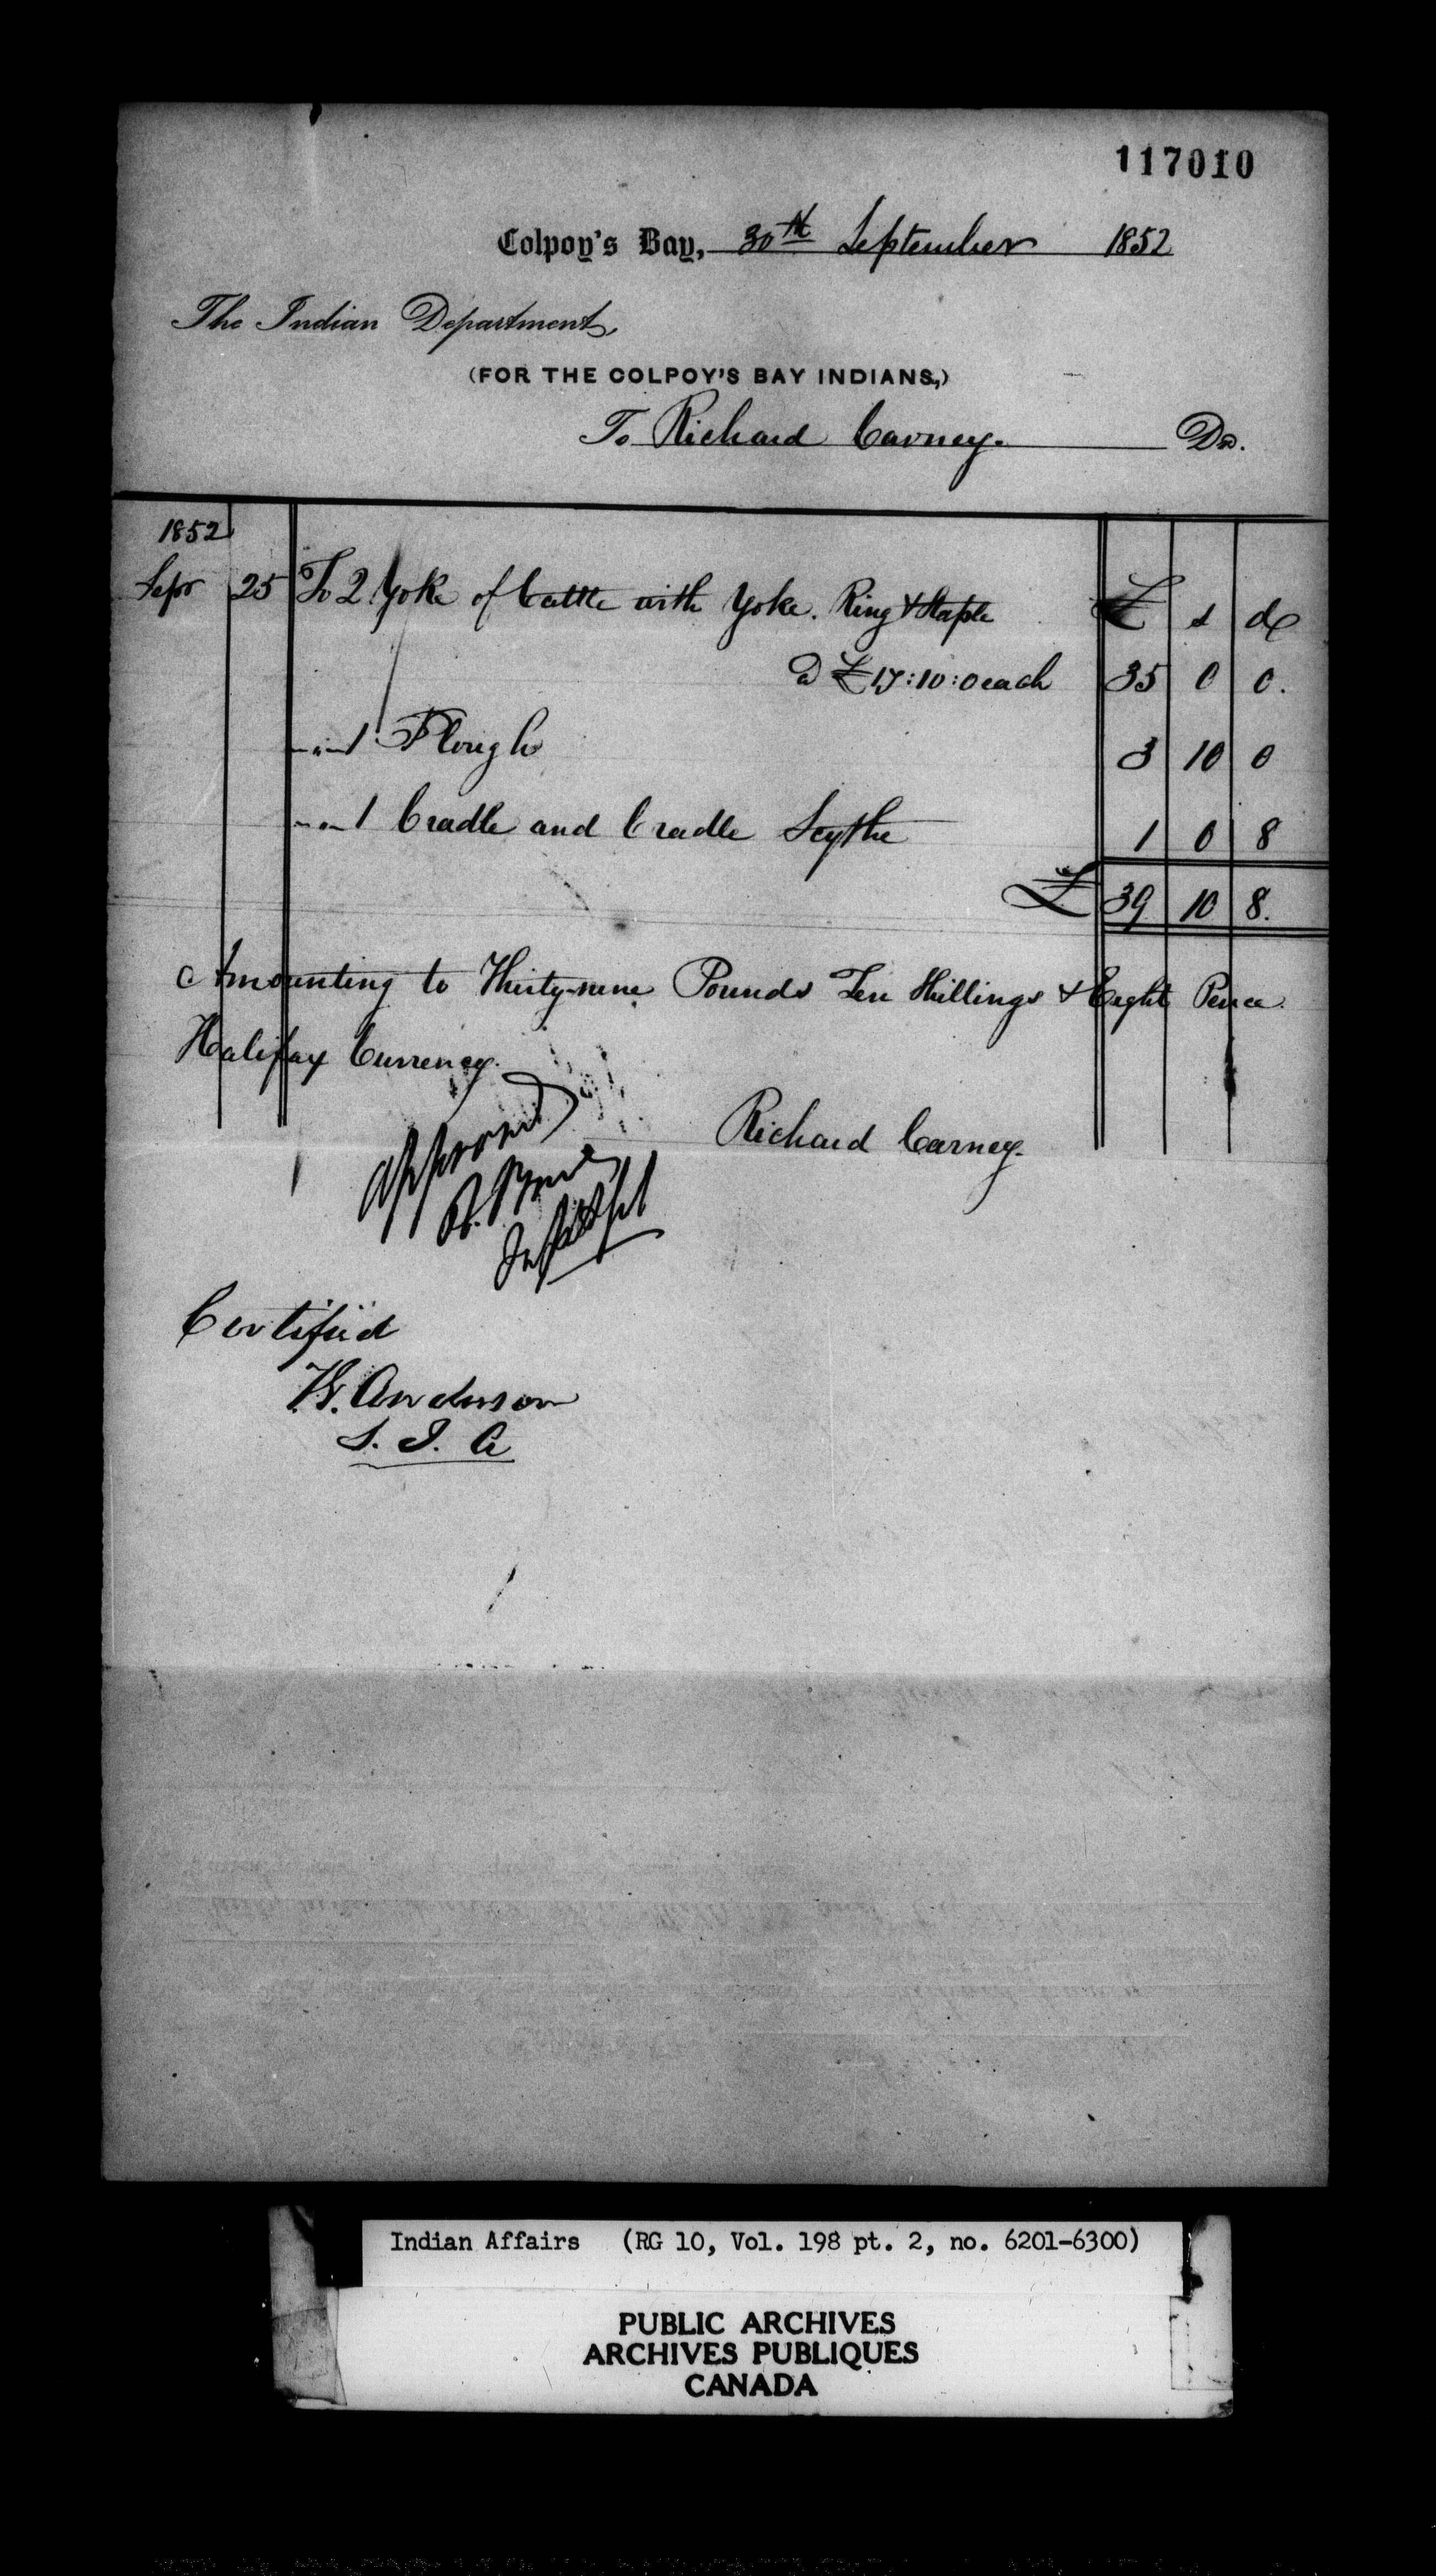 117010
Colpoy's Bay, 30th September 1852
The Indian Department,
(FOR THE COLPOY'S BAY INDIANS,)
To Richard Carney. Dr.
1852
Sepr 25 To 2 Yoke of Cattle with Yoke. Ring & Staple £ s d
@ £17:10:0 each 35 0 0.
-"- 1 Plough 3 10 0
-"- 1 Cradle and Cradle Scythe 1 0 8
£ 39 10 8.
Amounting to Thirty-nine Pounds Ten Shillings & Eight Pence.
Halifax Currency.
Approved
Richard Carney.
Certified
T.G. Anderson
S. I. A
Indian Affairs (RG 10, Vol. 198 pt. 2, no. 6201-6300)
PUBLIC ARCHIVES
ARCHIVES PUBLIQUES
CANADA